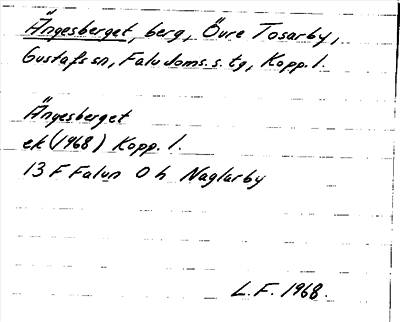 Ängesberget, berg, Övre Tosarby,
Gustafs sn, Falu doms.s. tg, Kopp. l.
Ängesberget
ek (1968) Kopp. l.
13 F Falun 0 h Naglarby
L.F. 1968.